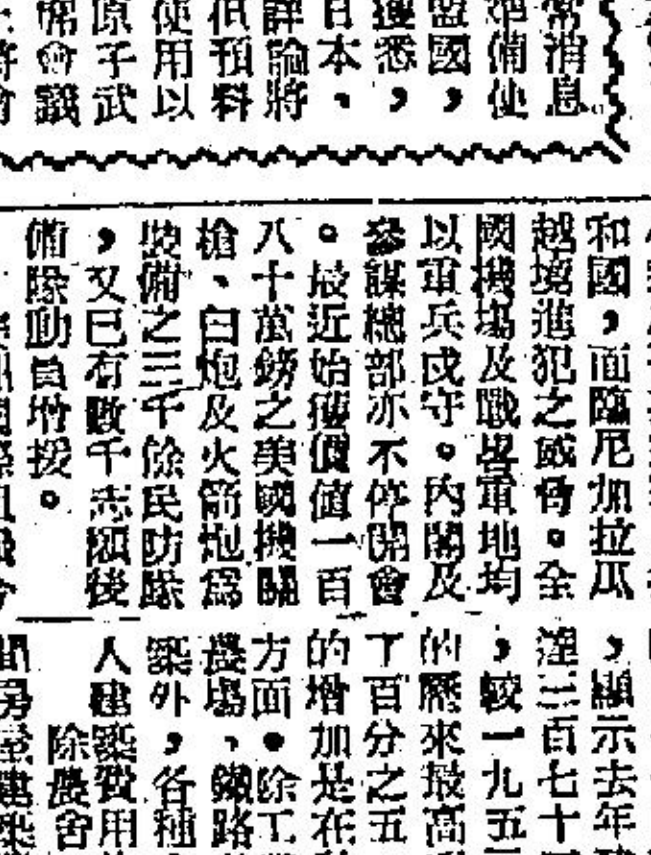 常消息
準備使
盟國,
獲悉,
日本、
評論將
但預料
使用以
原子武
席會議
和國,面臨尼加拉瓜
越境進犯之威脅。全
國機場及戰畧軍地均
以重兵戍守。內閣及
參謀總部亦不停開會
。最近始獲價值一百
八十萬鎊之美國機關
槍、臼炮及火箭炮爲
裝備之三千餘民防隊
,又已有數千志願後
備隊動員增援。
,顯示去年
達三百七十
,較一九五
的歷來最高
了百分之五
的增加是在
方面。除工
農場、鐵路
築外,各種
人建築費用
除農舍
間房屋建築